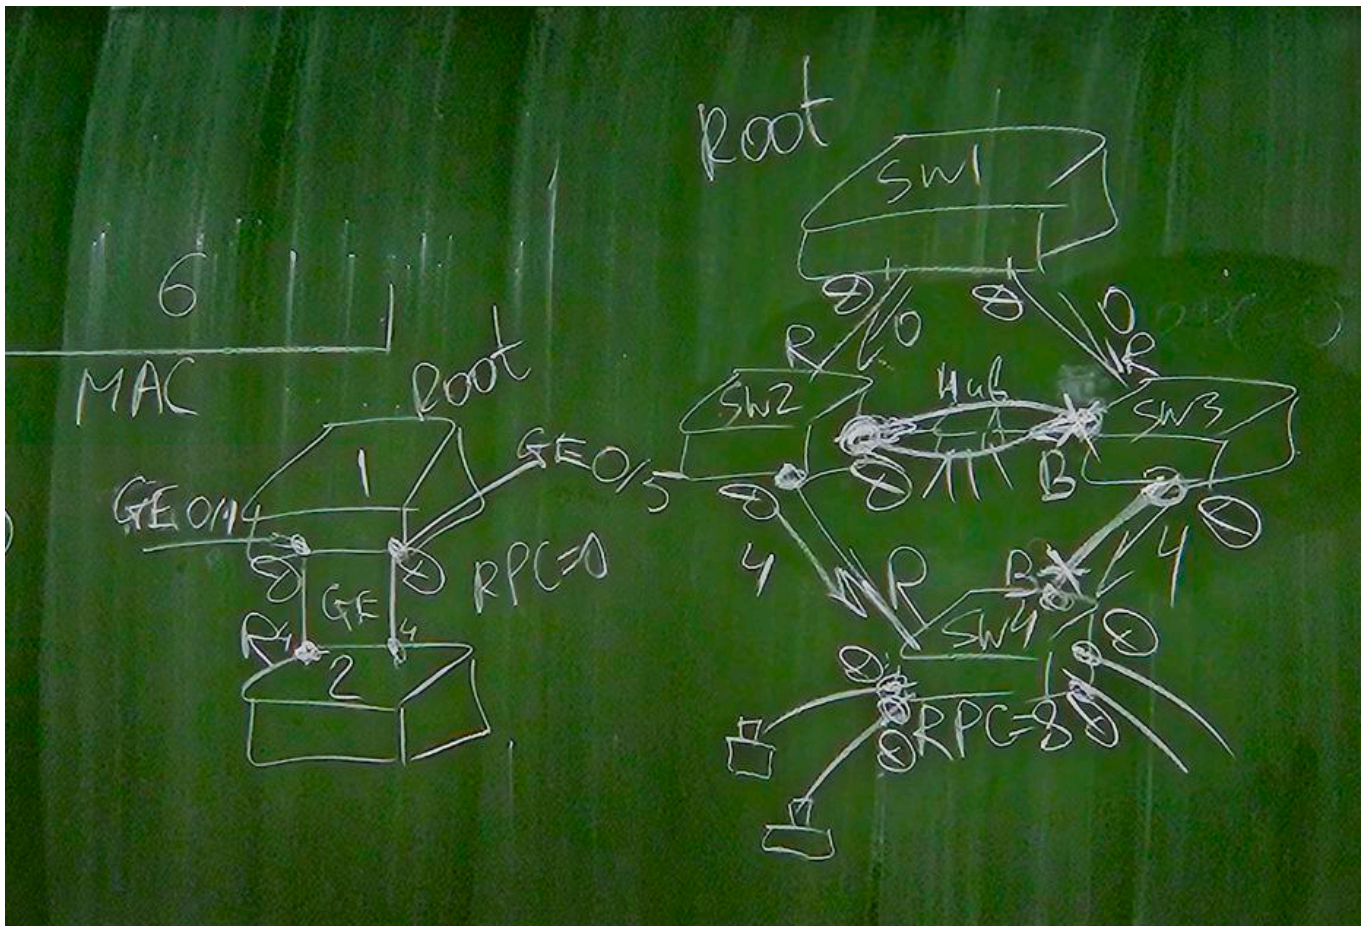 6
MAC
Root
1
GE 0/14
GE 0/5
RPC=0
GE
R 4
4
2
Root
SW1
0
0
R
R
SW2
Hub
SW3
B
4
4
R
B
SW4
RPC=8